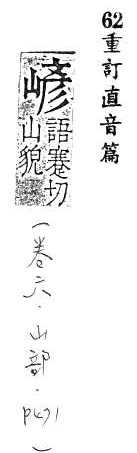 62重訂直音篇
嵃
語蹇切
山貌
(卷六·山部·p471)